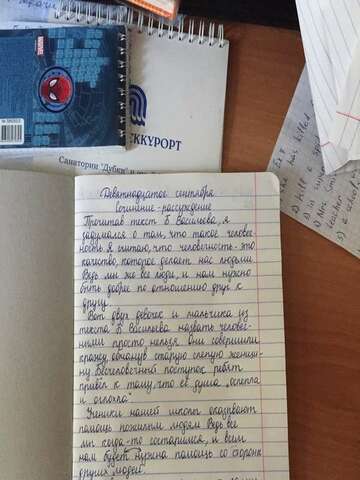 MARVEL
ККУРОРТ
Санатории "Дубки"
Девятнадцатое сентября
Сочинение-рассуждение
Прочитав текст Б. Васильева, я
задумался о том, что такое человеч-
ность. Я считаю, что человечность - это
качество, которое делает нас людьми.
Ведь мы же все люди, и нам нужно
быть добрее по отношению друг к
другу.
Вот двух девочек и мальчика из
текста Б. Васильева назвать человеч-
ными просто нельзя: они совершили
кражу, обманув старую слепую женщи-
ну. Бесчеловечный поступок ребят
привёл к тому, что её душа „ослепла
и оглохла".
Ученики нашей школы оказывают
помощь пожилым людям. Ведь все
мы когда-то состаримся, и всем
нам будет нужна помощь со стороны
других людей.
killed
teacher